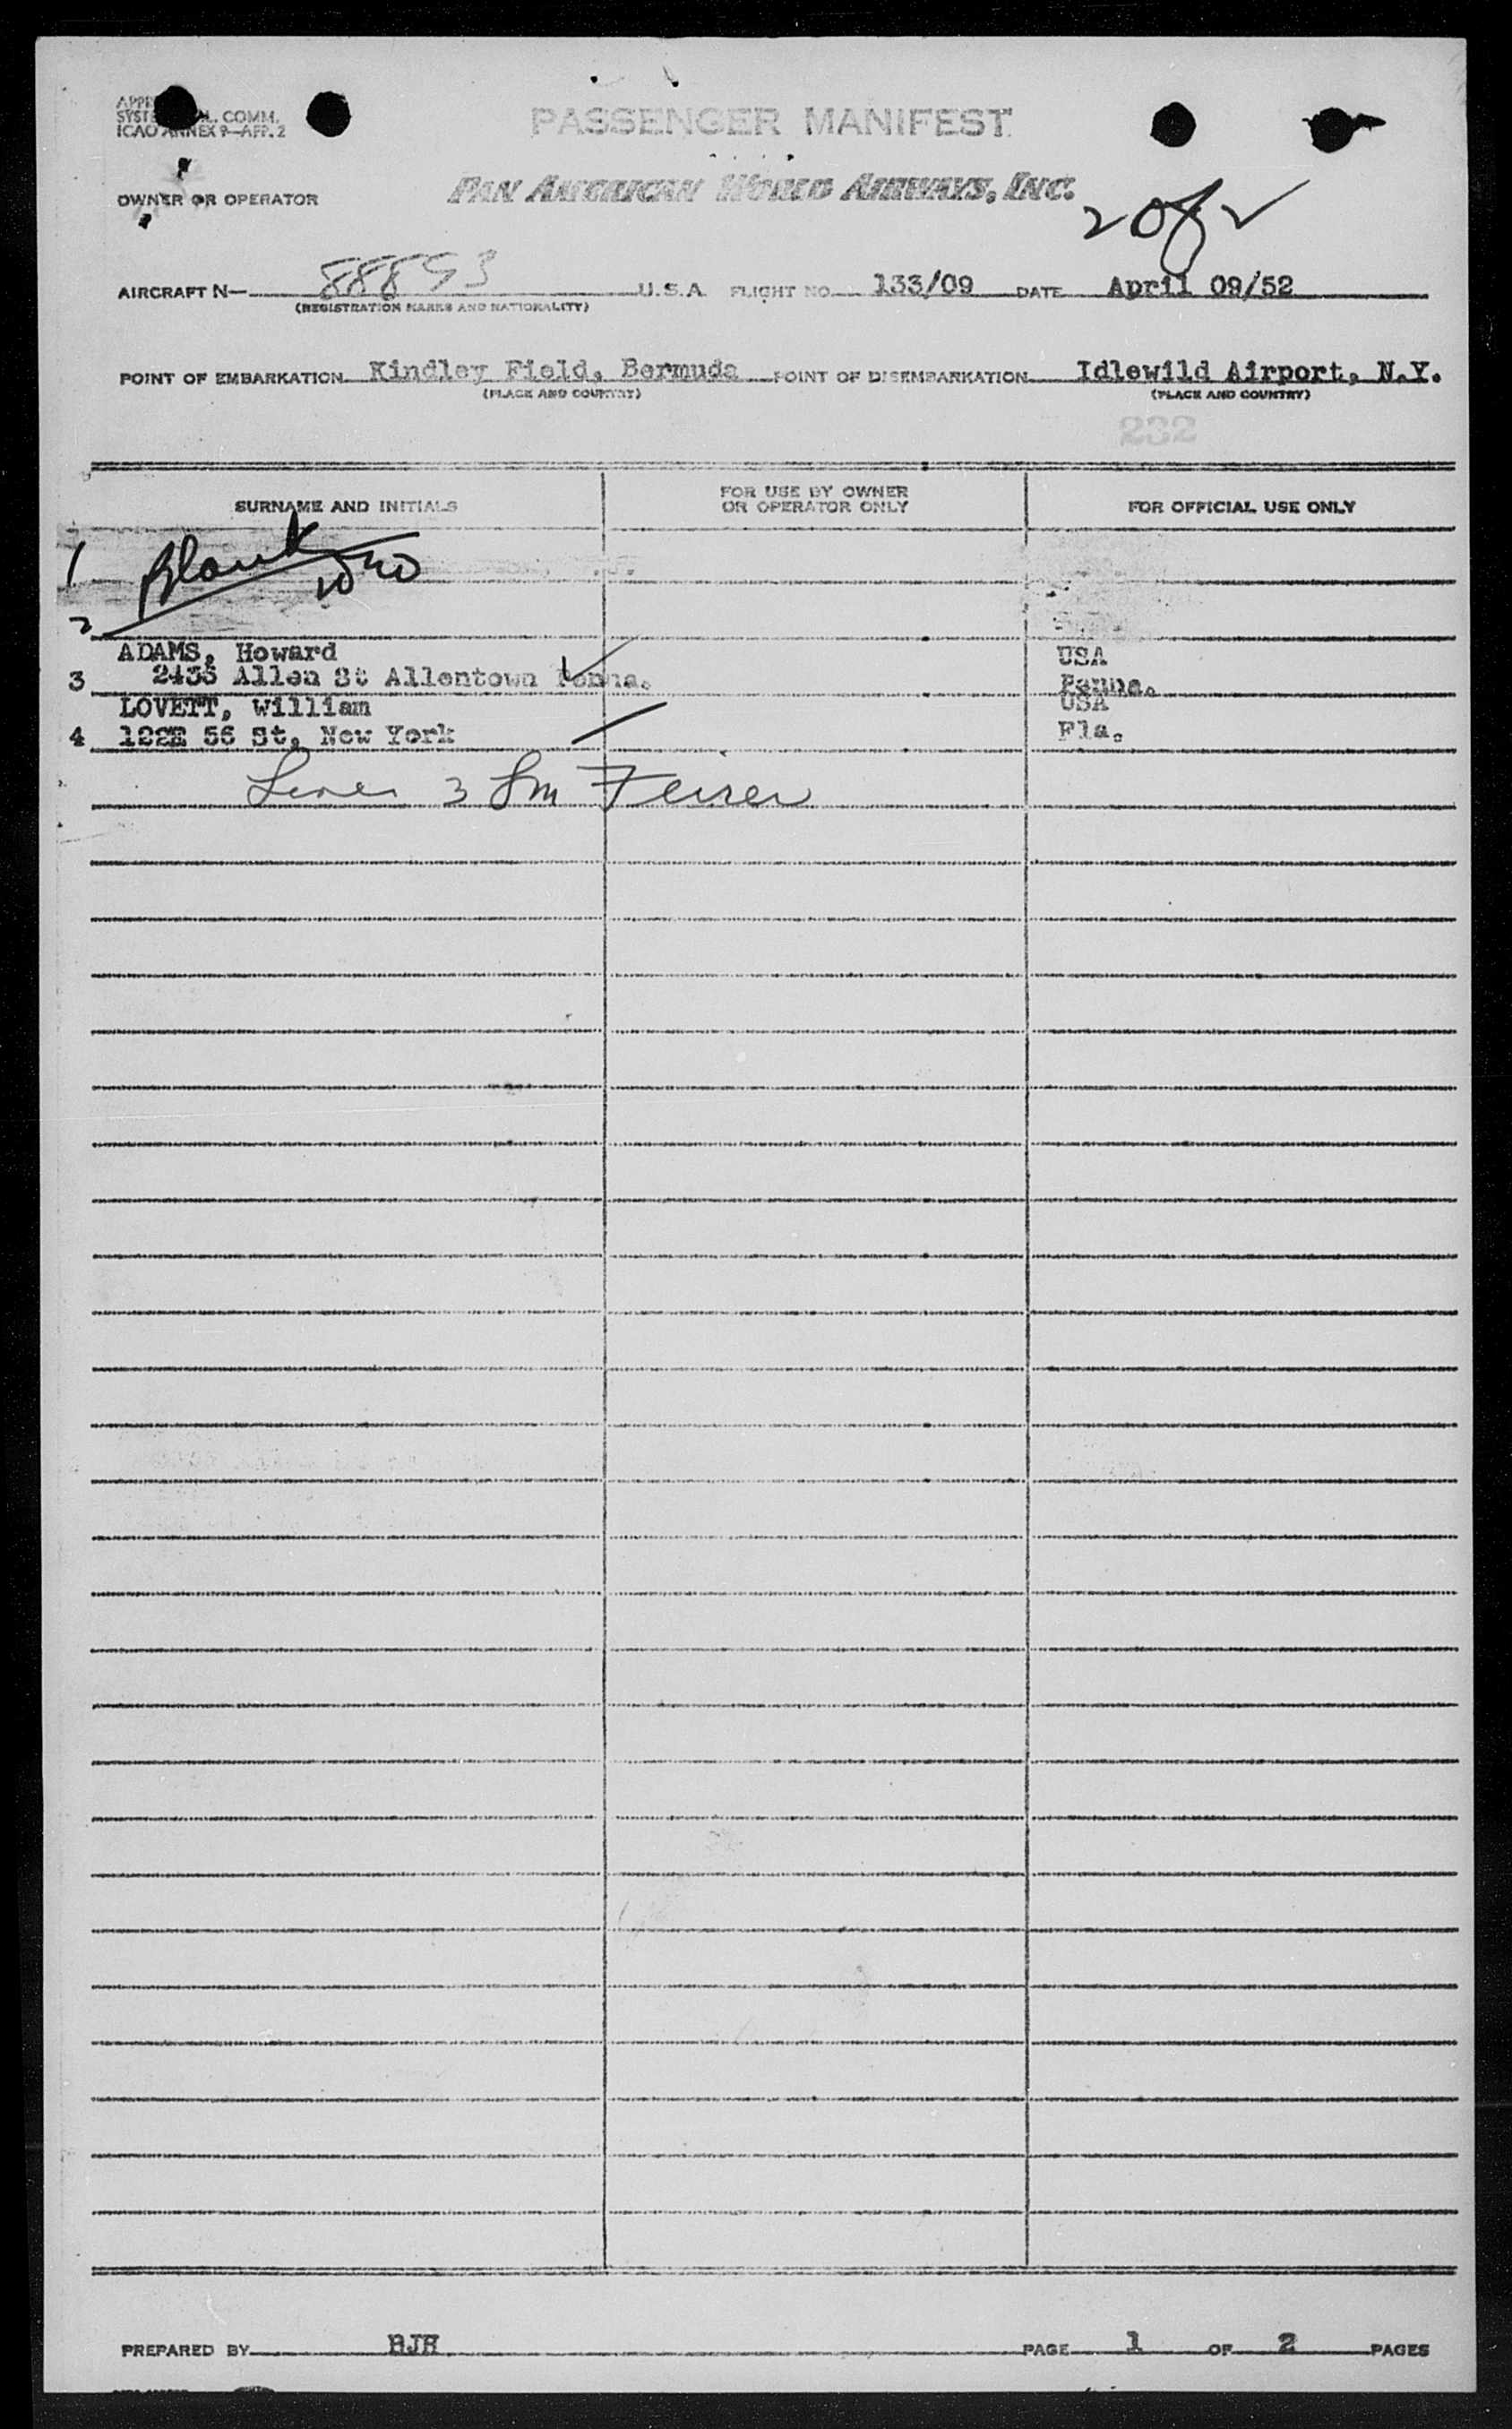 SYSTE L. COMM.
ICAO ANNEX 9—APP. 2
PASSENGER MANIFEST
OWNER OR OPERATOR PAN AMERICAN WORLD AIRWAYS, INC.
2 of 2
AIRCRAFT N— 88893 U.S.A. FLIGHT NO. 133/09 DATE April 09/52
(REGISTRATION MARKS AND NATIONALITY)
POINT OF EMBARKATION Kindley Field, Bermuda POINT OF DISEMBARKATION Idlewild Airport, N.Y.
(PLACE AND COUNTRY) (PLACE AND COUNTRY)
232
SURNAME AND INITIALS FOR USE BY OWNER OR OPERATOR ONLY FOR OFFICIAL USE ONLY
1 Blank
2
ADAMS, Howard USA
3 2435 Allen St Allentown Penna. Penna.
LOVETT, William USA
4 122E 56 St, New York Fla.
Lines 3
PREPARED BY PAGE 1 OF 2 PAGES